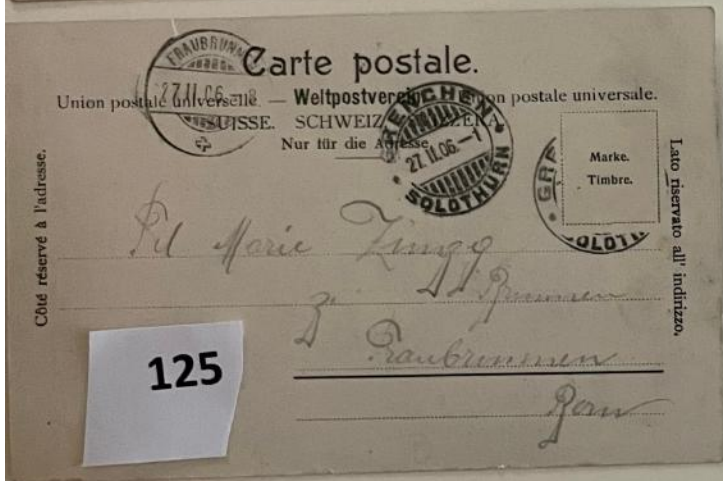 Carte postale.
Union postale universelle. — Weltpostverein — Union postale universale.
SUISSE. SCHWEIZ. SVIZZERA.
Nur für die Adresse.
FRAUBRUNNEN
27.II.06.–8
GRENCHEN
27.II.06.–1
SOLOTHURN
GRE
SOLOTH
Marke.
Timbre.
Côté réservé à l'adresse.
Lato riservato all' indirizzo.
Marie Zingg
Brunnen
Fraubrunnen
Bern
125